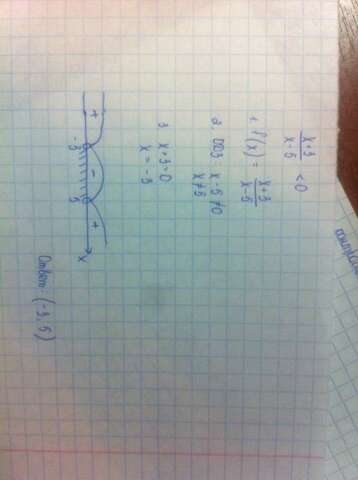 x+3
x-5 < 0
1. f(x) = x+3
x-5
2. ОДЗ: x-5≠0
x≠5
3. x+3=0
x = -3
+ - +
-3 5 x
Ответ: (-3; 5)